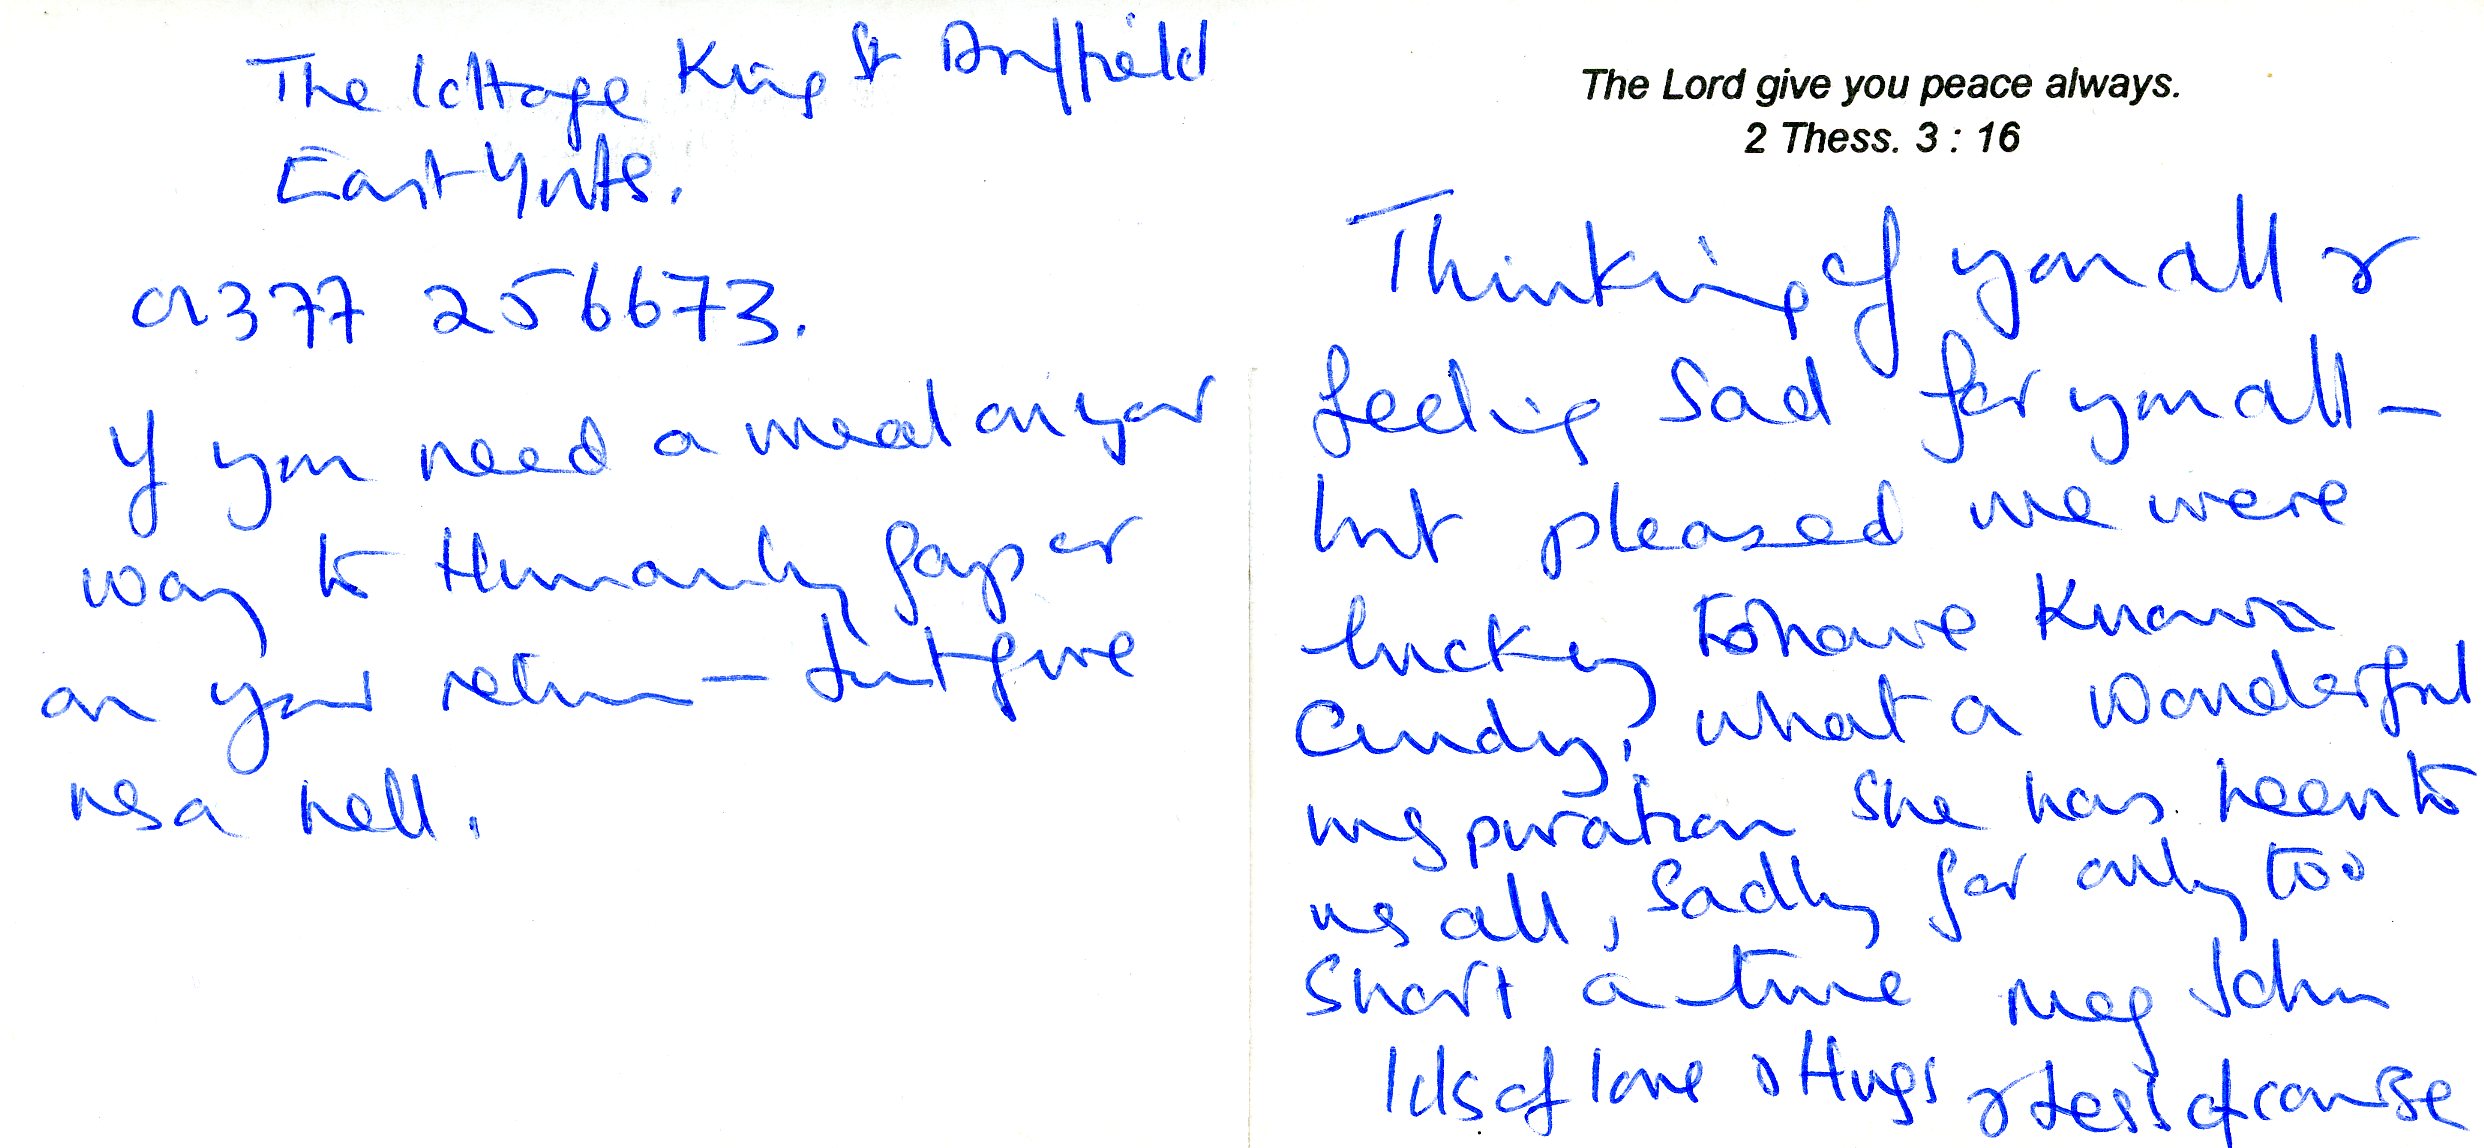 The Cottage King St Driffield
East Yorks.
01377 256673.
If you need a meal on your
way to Hunmanby Gap or
on your return — Just give
us a bell.
The Lord give you peace always.
2 Thess. 3 : 16
Thinking of you all &
feeling sad for you all —
but pleased we were
lucky to have known
Cindy, what a wonderful
inspiration she has been to
us all, sadly for only too
short a time Meg John
lots of love & Hugs & Tess of course